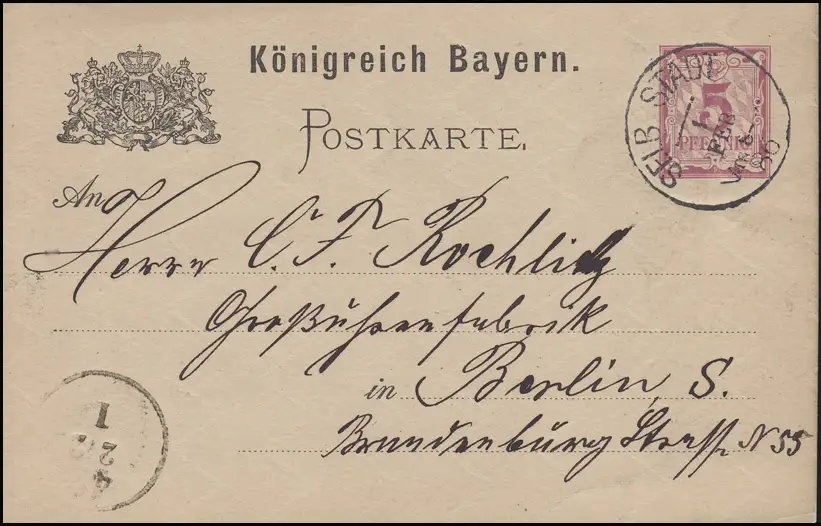 Königreich Bayern.
POSTKARTE.
5
PFENNIG
SELB STADT
1
FEB
86
An
Herrn C. F. Rochlitz
Großuhrenfabrik
in Berlin, S.
Brandenburg Strasse N 55
1
2